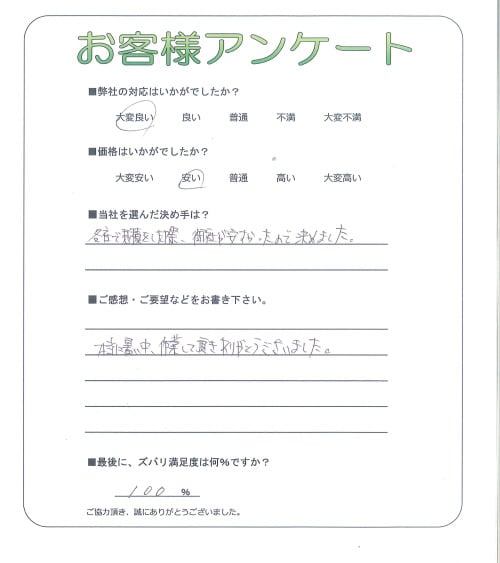 お客様アンケート
■弊社の対応はいかがでしたか？
大変良い 良い 普通 不満 大変不満
■価格はいかがでしたか？
大変安い 安い 普通 高い 大変高い
■当社を選んだ決め手は？
各社で見積をした際、御社が安かったので決めました。
■ご感想・ご要望などをお書き下さい。
本当に暑い中、作業して頂きありがとうございました。
■最後に、ズバリ満足度は何％ですか？
100 %
ご協力頂き、誠にありがとうございました。